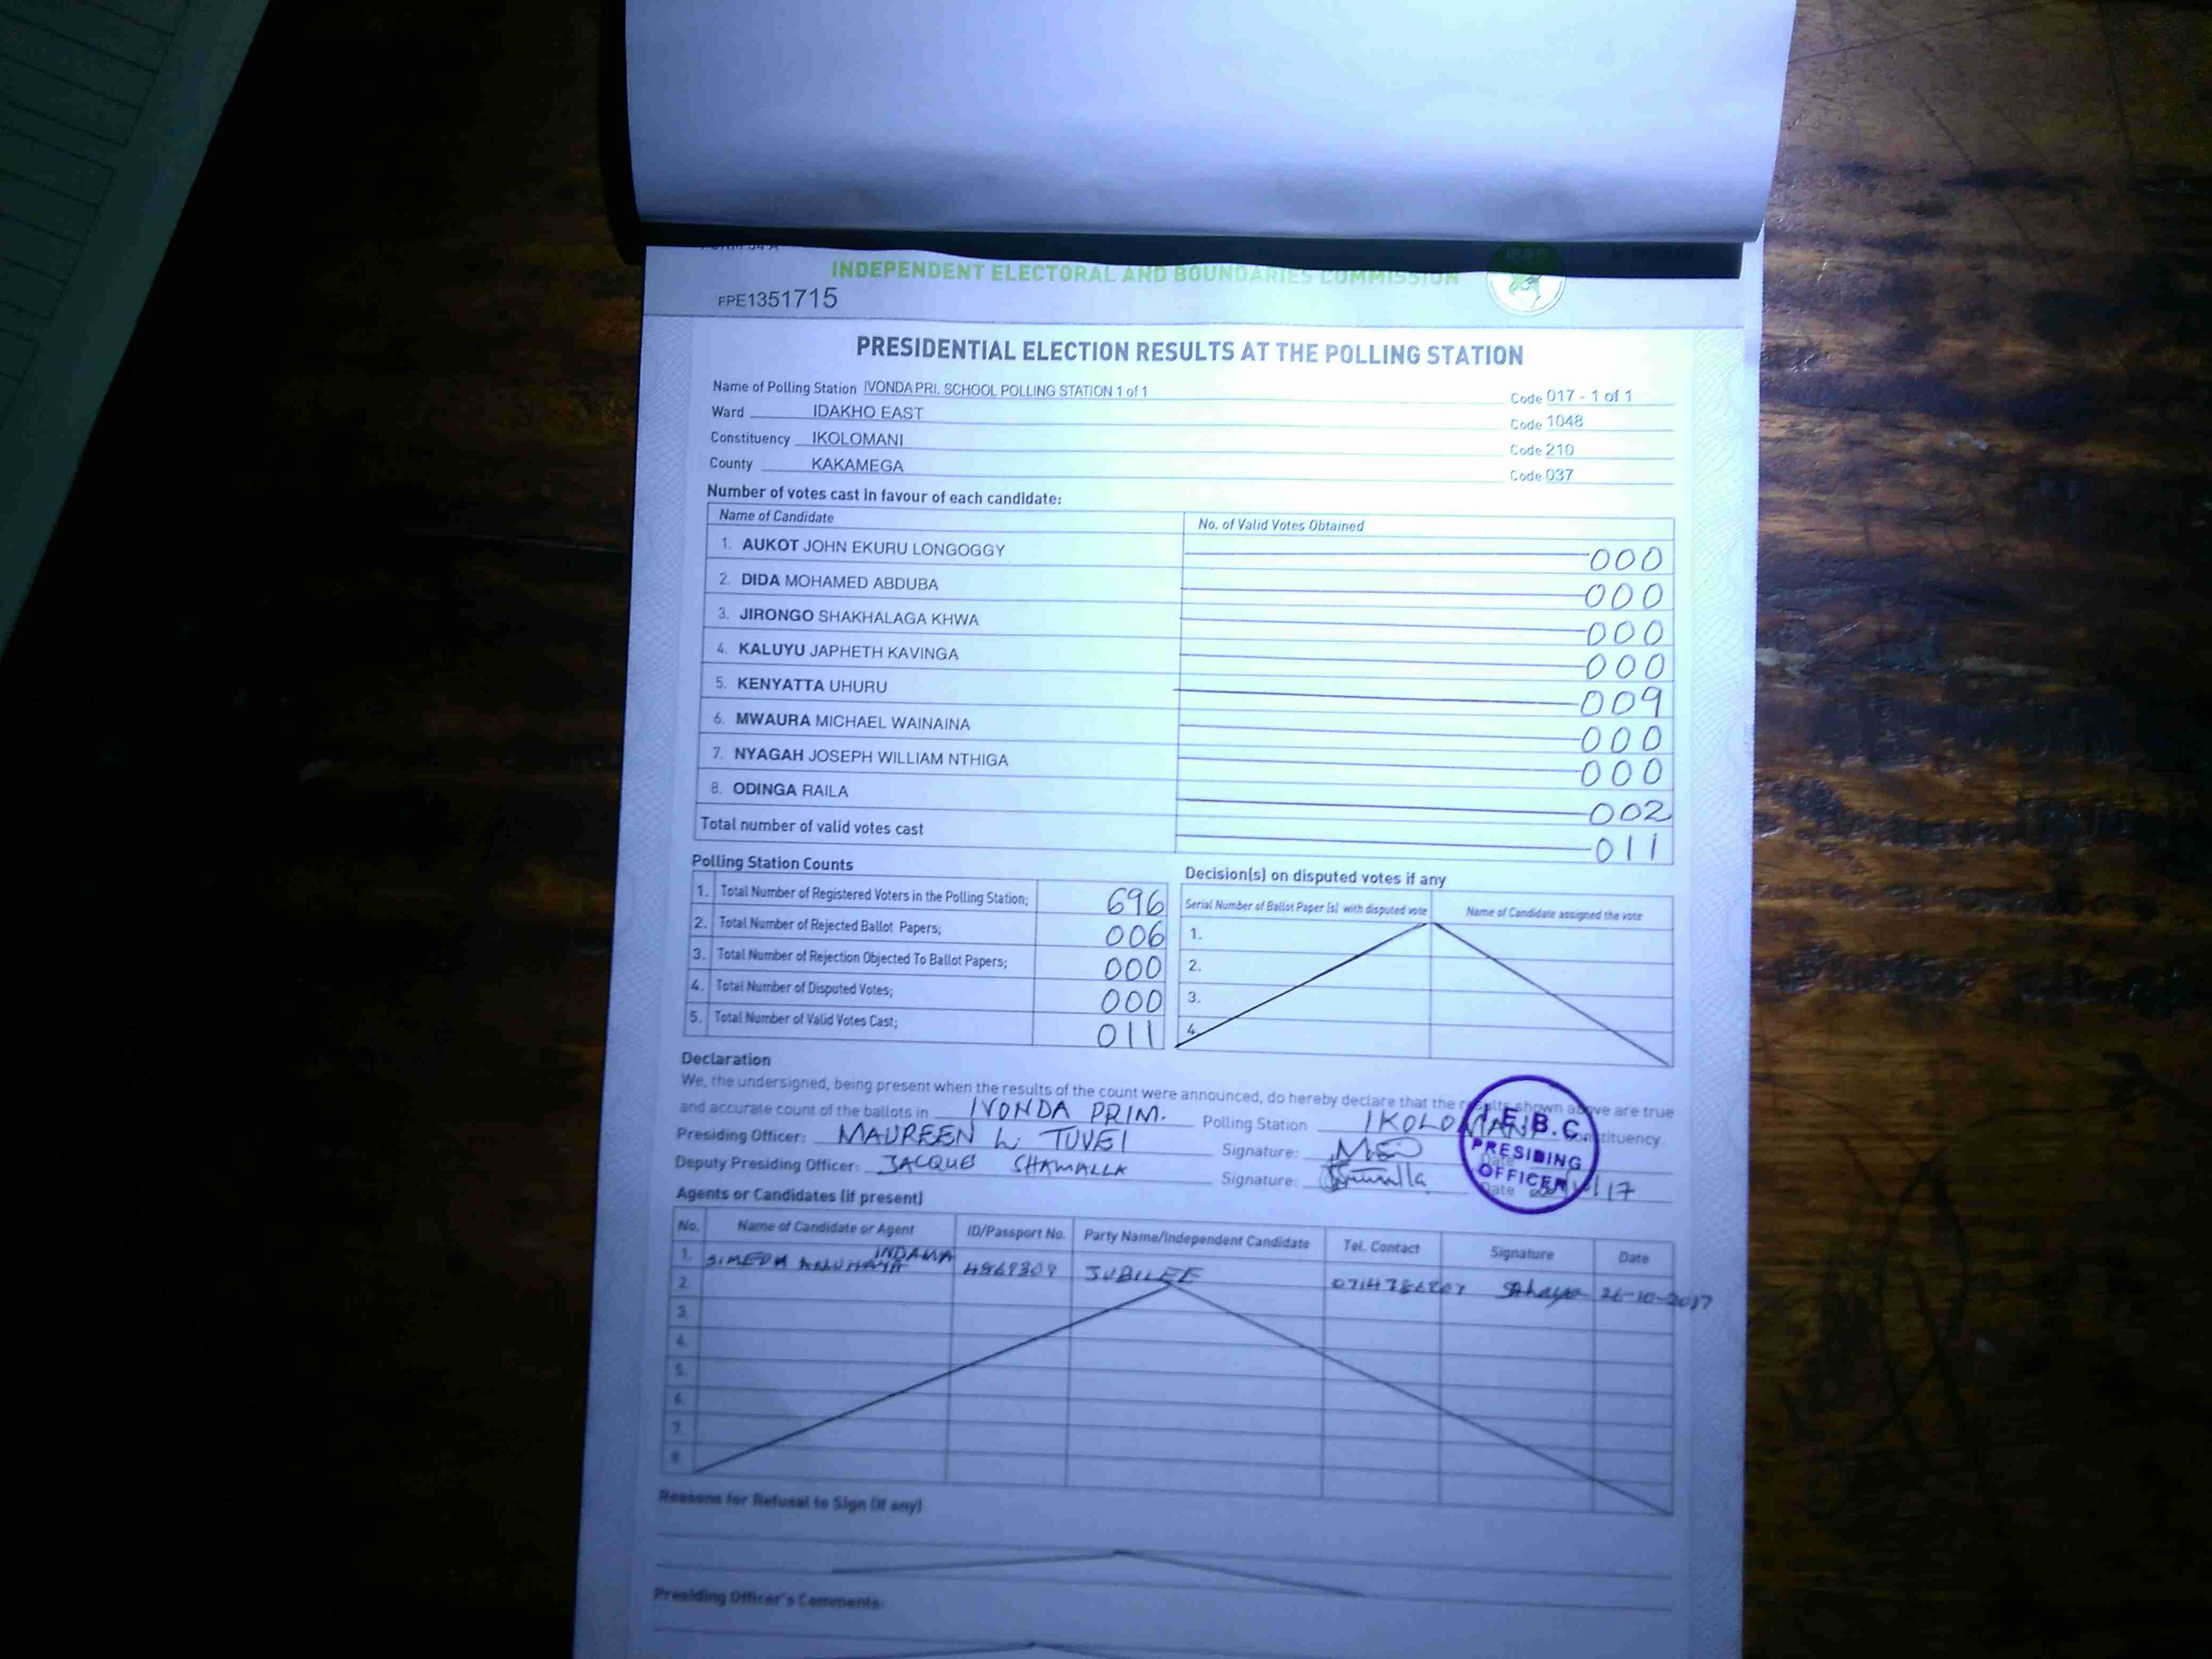 INDEPENDENT ELECTORAL AND BOUNDARIES COMMISSION
FPE1351715
PRESIDENTIAL ELECTION RESULTS AT THE POLLING STATION
Name of Polling Station IVONDA PRI. SCHOOL POLLING STATION 1 of 1 Code 017 - 1 of 1
Ward IDAKHO EAST Code 1048
Constituency IKOLOMANI Code 210
County KAKAMEGA Code 037
Number of votes cast in favour of each candidate:
Name of Candidate No. of Valid Votes Obtained
1. AUKOT JOHN EKURU LONGOGGY 000
2. DIDA MOHAMED ABDUBA 000
3. JIRONGO SHAKHALAGA KHWA 000
4. KALUYU JAPHETH KAVINGA 000
5. KENYATTA UHURU 009
6. MWAURA MICHAEL WAINAINA 000
7. NYAGAH JOSEPH WILLIAM NTHIGA 000
8. ODINGA RAILA 002
Total number of valid votes cast 011
Polling Station Counts
1. Total Number of Registered Voters in the Polling Station; 696
2. Total Number of Rejected Ballot Papers; 006
3. Total Number of Rejection Objected To Ballot Papers; 000
4. Total Number of Disputed Votes; 000
5. Total Number of Valid Votes Cast; 011
Decision(s) on disputed votes if any
Serial Number of Ballot Paper (s) with disputed vote Name of Candidate assigned the vote
1.
2.
3.
4.
Declaration
We, the undersigned, being present when the results of the count were announced, do hereby declare that the results shown above are true
and accurate count of the ballots in IVONDA PRIM. Polling Station IKOLOMANI Constituency.
Presiding Officer: MAUREEN L. TUVEI Signature: Date
Deputy Presiding Officer: JACQUE SHAMALLA Signature: Date 17
I.E.B.C
PRESIDING
OFFICER
Agents or Candidates (if present)
No. Name of Candidate or Agent ID/Passport No. Party Name/Independent Candidate Tel. Contact Signature Date
1. INDAWA JUBILEE 26-10-2017
2.
3.
4.
5.
6.
7.
8.
Reasons for Refusal to Sign (if any)
Presiding Officer's Comments: